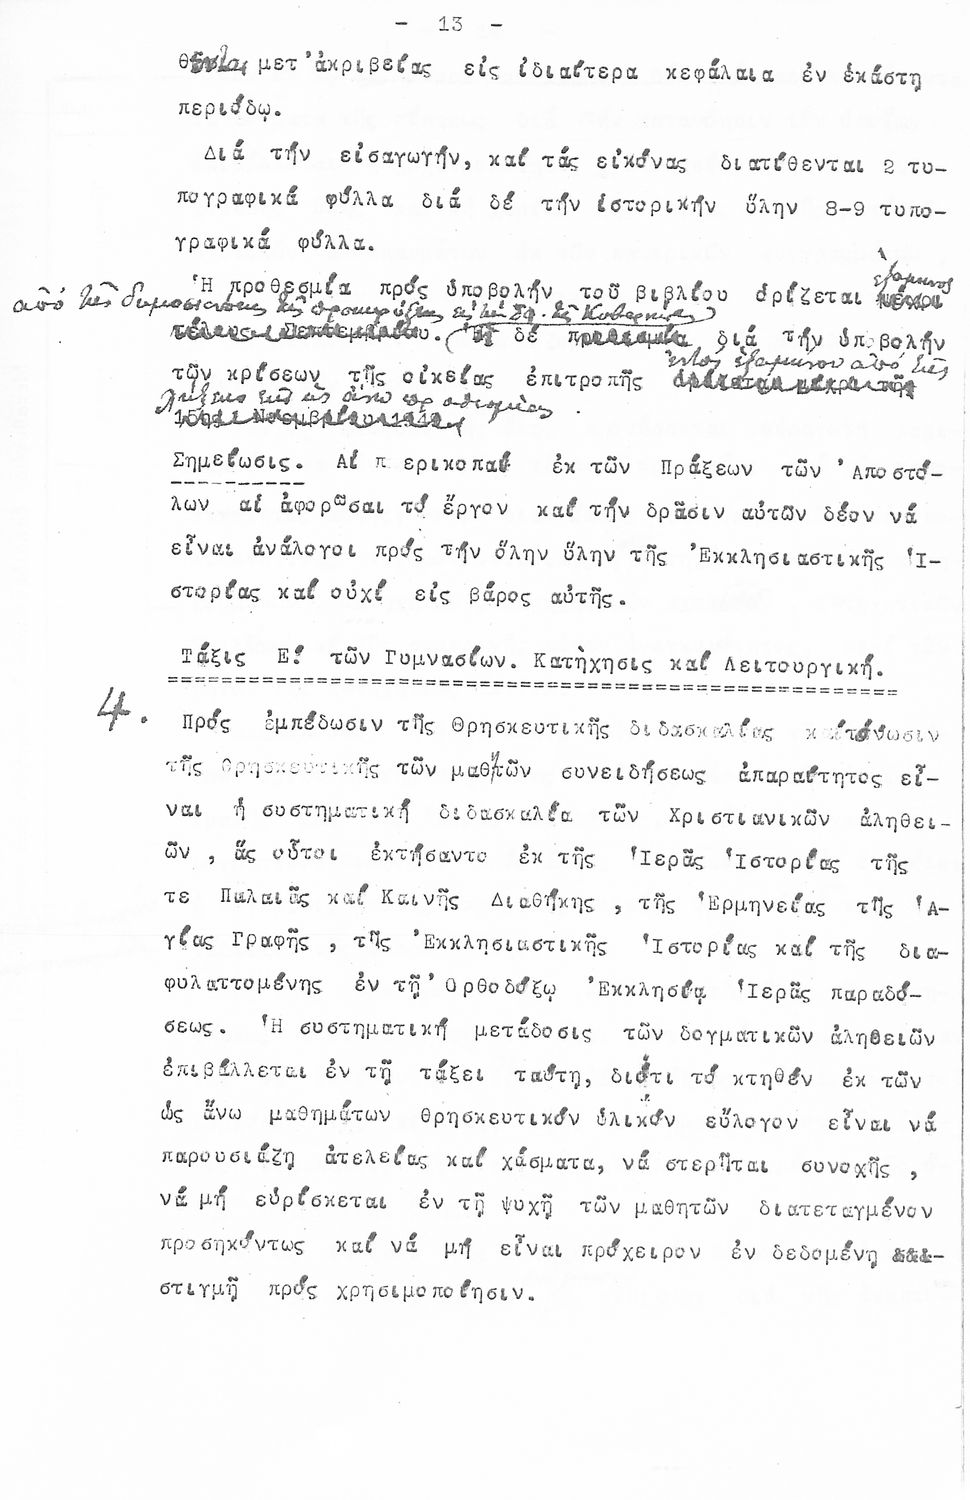 - 13 -
μετ'ἀκριβείας εἰς ἰδιαίτερα κεφάλαια ἐν ἑκάστῃ
περιόδῳ.
Διά τήν εἰσαγωγήν, καί τάς εἰκόνας διατίθενται 2 τυ-
πογραφικά φύλλα διά δέ τήν ἱστορικήν ὕλην 8-9 τυπο-
γραφικά φύλλα.
ἑξάμηνος
Ἡ προθεσμία πρός ὑποβολήν τοῦ βιβλίου ὁρίζεται μέχρι
ἀπό τῆς δημοσιεύσεως τῆς προκηρύξεως εἰς τήν Ἐφ. τῆς Κυβερνήσεως
τέλους Σεπτεμβρίου. Ἡ δέ προθεσμία διά τήν ὑποβολήν
ἐντός ἑξαμήνου ἀπό τῆς
τῶν κρίσεων τῆς οἰκείας ἐπιτροπῆς ὁρίζεται μέχρι τῆς
λήξεως τῆς ὡς ἄνω προθεσμίας.
15ης Νοεμβρίου
Σημείωσις. Αἱ π ερικοπαί ἐκ τῶν Πράξεων τῶν 'Αποστό-
λων αἱ ἀφορῶσαι τό ἔργον καί τήν δρᾶσιν αὐτῶν δέον νά
εἶναι ἀνάλογοι πρός τήν ὅλην ὕλην τῆς Ἐκκλησιαστικῆς Ἱ-
στορίας καί οὐχί εἰς βάρος αὐτῆς.
Τάξις Ε! τῶν Γυμνασίων. Κατήχησις καί Λειτουργική.
4. Πρός ἐμπέδωσιν τῆς Θρησκευτικῆς διδασκαλίας κ τόνωσιν
τῆς θρησκευτικῆς τῶν μαθητῶν συνειδήσεως ἀπαραίτητος εἶ-
ναι ἡ συστηματική διδασκαλία τῶν Χριστιανικῶν ἀληθει-
ῶν , ἅς οὗτοι ἐκτήσαντο ἐκ τῆς Ἱερᾶς Ἱστορίας τῆς
τε Παλαιᾶς καί Καινῆς Διαθήκης , τῆς Ἑρμηνείας τῆς Ἁ-
γίας Γραφῆς , τῆς Ἐκκλησιαστικῆς Ἱστορίας καί τῆς δια-
φυλαττομένης ἐν τῇ Ὀρθοδόξῳ Ἐκκλησίᾳ Ἱερᾶς παραδό-
σεως. Ἡ συστηματική μετάδοσις τῶν δογματικῶν ἀληθειῶν
ἐπιβάλλεται ἐν τῇ τάξει ταύτῃ, διότι τό κτηθέν ἐκ τῶν
ὡς ἄνω μαθημάτων θρησκευτικόν ὑλικόν εὔλογον εἶναι νά
παρουσιάζῃ ἀτελείας καί χάσματα, νά στερῆται συνοχῆς ,
νά μή εὑρίσκεται ἐν τῇ ψυχῇ τῶν μαθητῶν διατεταγμένον
προσηκόντως καί νά μή εἶναι πρόχειρον ἐν δεδομένῃ
στιγμῇ πρός χρησιμοποίησιν.